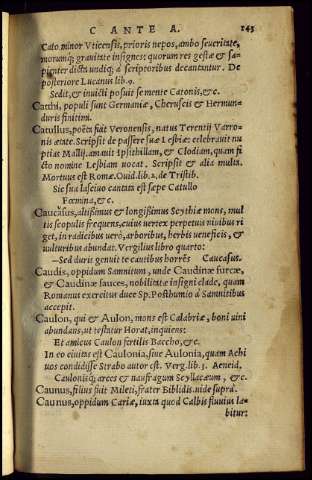 CANTE A. 143
Cato minor Vticensis, prioris nepos, ambo seueritate,
morumq; grauitate insignes: quorum res gestæ & sa-
pienter dicta undiq; à scriptoribus decantantur. De
posteriore Lucanus lib. 9.
Sedit, & inuicti posuit se mente Catonis, &c.
Catthi, populi sunt Germaniæ, Cheruscis & Hermun-
duris finitimi.
Catullus, poëta fuit Veronensis, natus Terentij Varro-
nis ætate. Scripsit de passere suæ Lesbiæ: celebrauit nu
ptias Mallij. amauit Ipsithillam, & Clodiam, quam fi
cto nomine Lesbiam uocat. Scripsit & alia multa.
Mortuus est Romæ. Ouid. lib. 2. de Tristib.
Sic sua lasciuo cantata est sæpe Catullo
Fœmina, &c.
Caucasus, altissimus & longissimus Scythiæ mons, mul
tis scopulis frequens, cuius uertex perpetuis niuibus ri
get, in radicibus uerò, arboribus, herbis ueneficis, &
uulturibus abundat. Vergilius libro quarto:
—Sed duris genuit te cautibus horrēs Caucasus.
Caudis, oppidum Samnitum, unde Caudinæ furcæ,
& Caudinæ fauces, nobilitatæ insigni clade, quam
Romanus exercitus duce Sp. Posthumio à Samnitibus
accepit.
Caulon, qui & Aulon, mons est Calabriæ, boni uini
abundans, ut testatur Horat. inquiens:
Et amicus Caulon fertilis Baccho, &c.
In eo ciuitas est Caulonia, siue Aulonia, quam Achi
uos condidisse Strabo autor est. Verg. lib. 3. Aeneid.
Cauloniiq; arces & naufragum Scyllacæum, &c.
Caunus, filius fuit Mileti, frater Biblidis. uide suprà.
Caunus, oppidum Cariæ, iuxta quod Calbis fluuius la-
bitur: